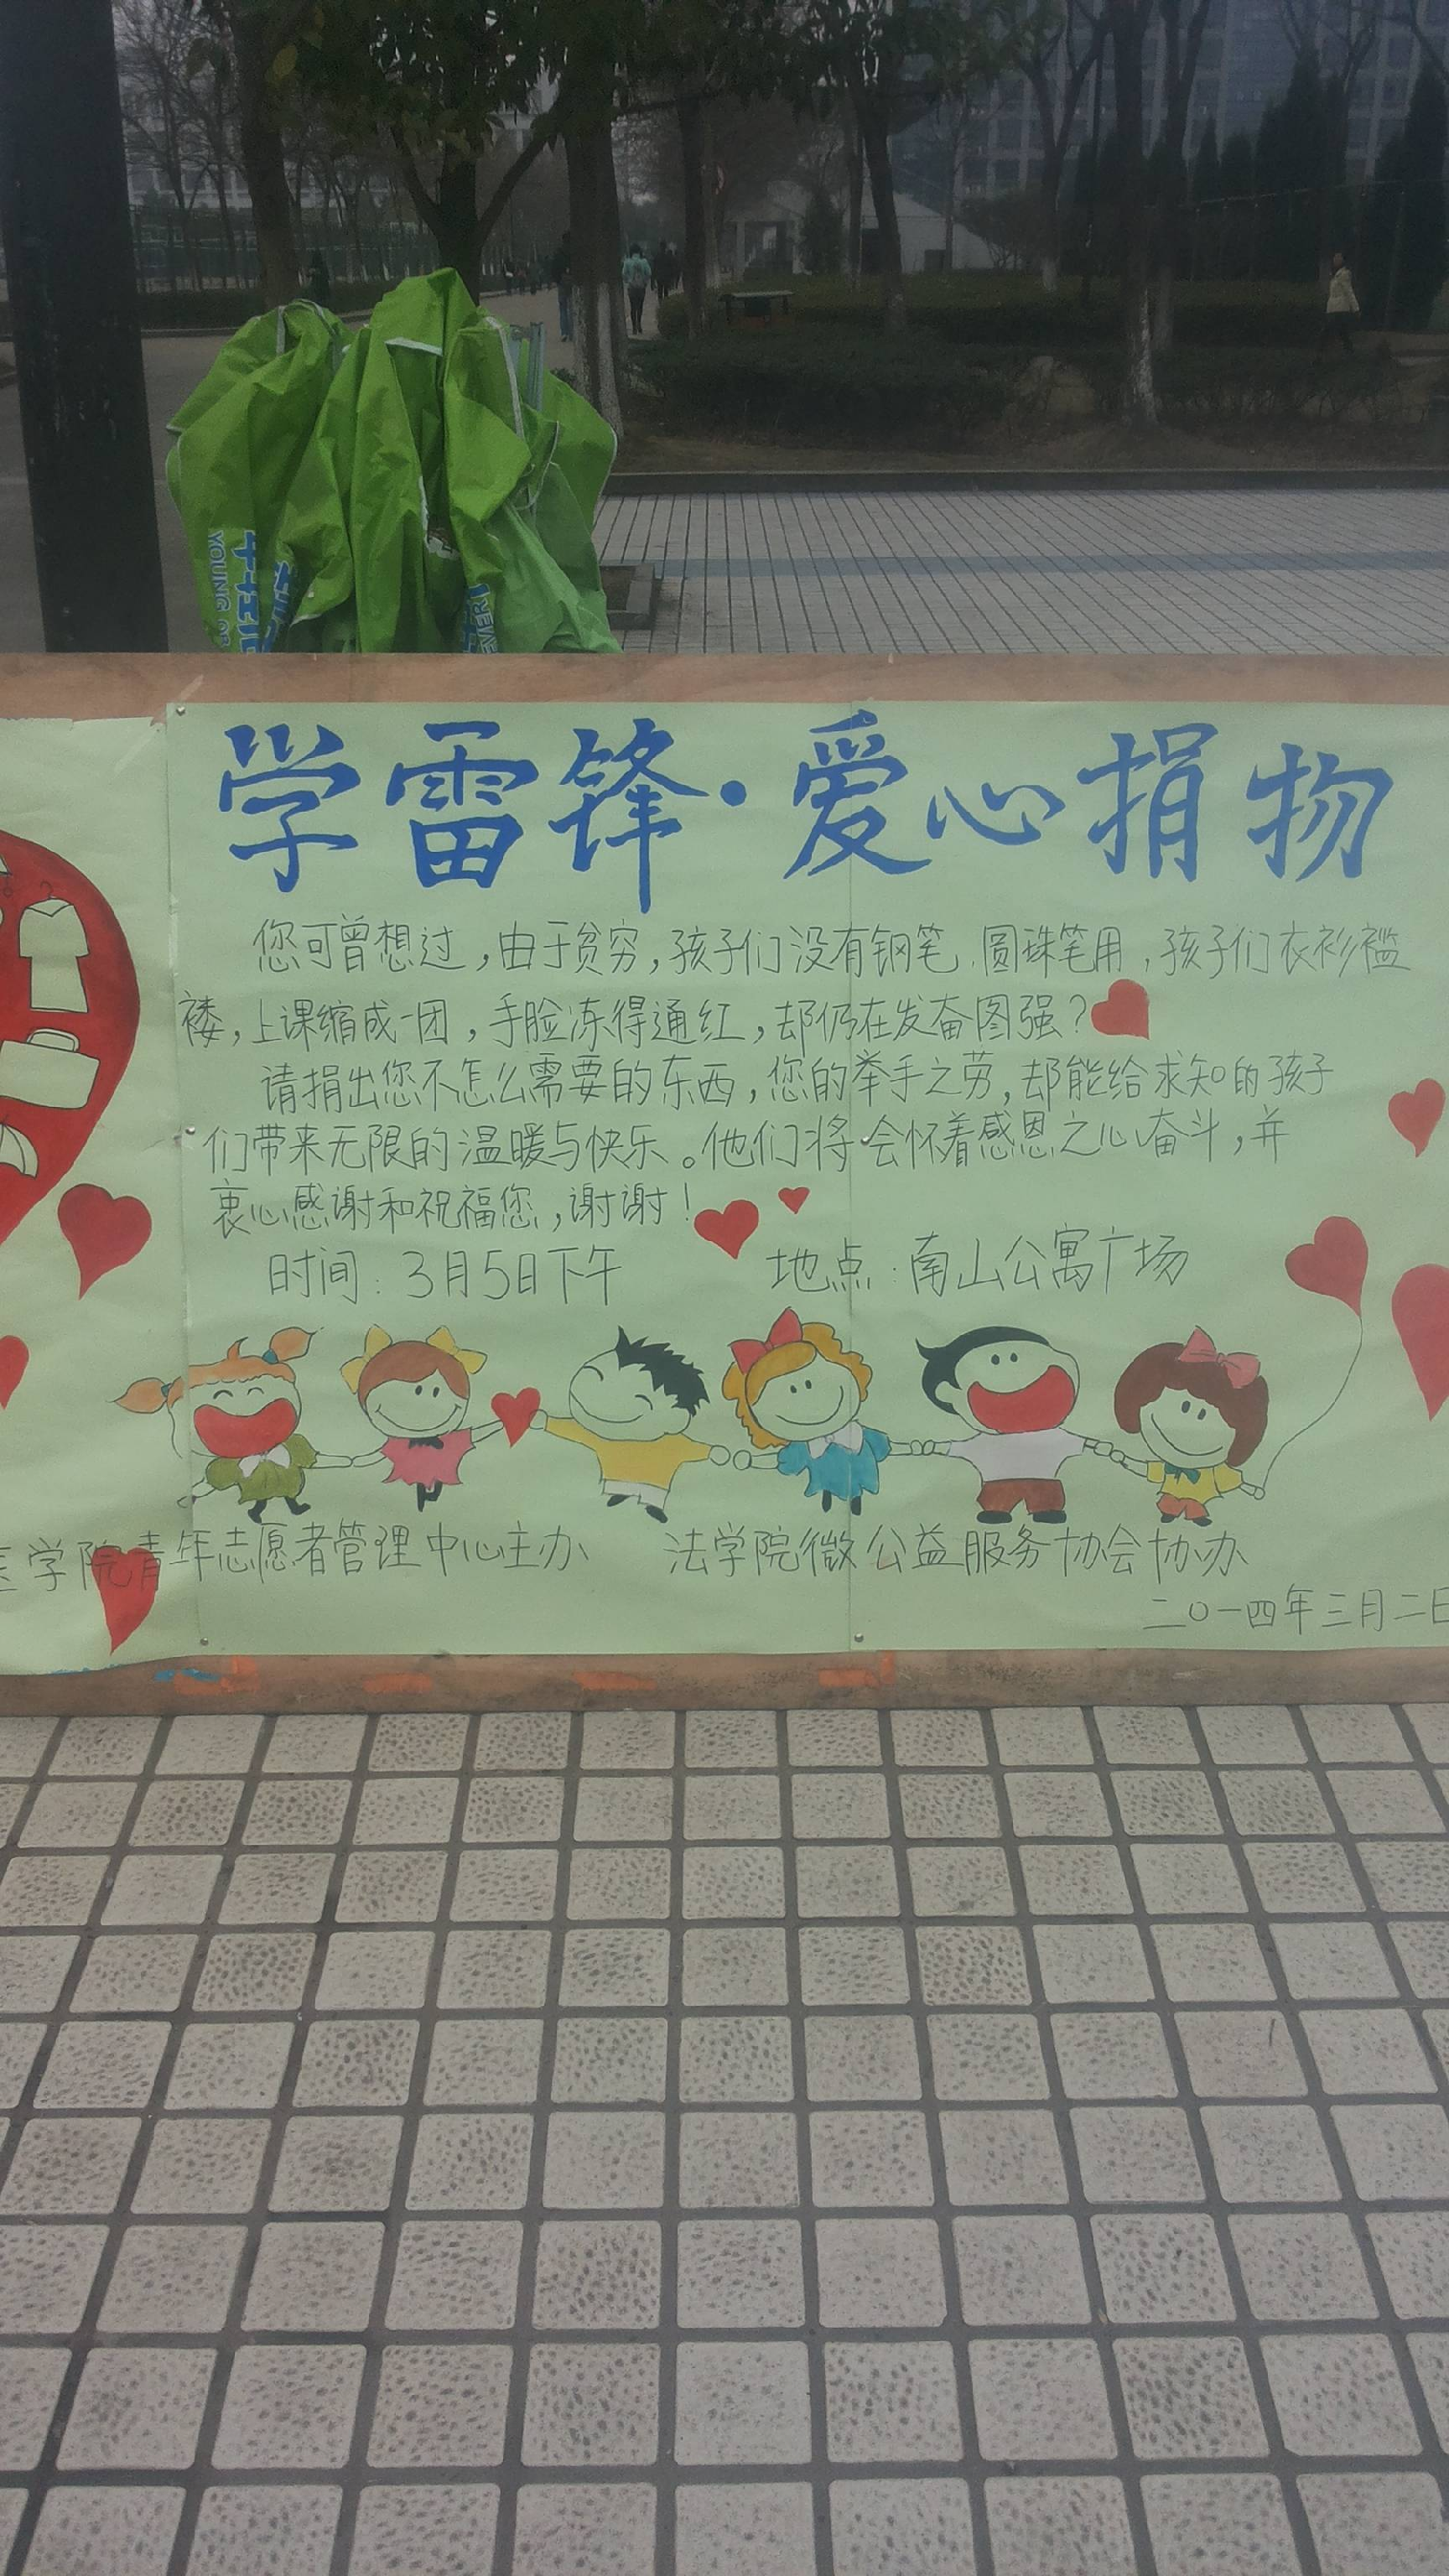 YOUNG
学雷锋·爱心捐物
您可曾想过，由于贫穷，孩子们没有钢笔、圆珠笔用，孩子们衣衫褴
褛，上课缩成一团，手脸冻得通红，却仍在发奋图强？
请捐出您不怎么需要的东西，您的举手之劳，却能给求知的孩子
们带来无限的温暖与快乐。他们将会怀着感恩之心奋斗，并
衷心感谢和祝福您，谢谢！
时间：3月5日下午 地点：南山公寓广场
医学院青年志愿者管理中心主办 法学院微公益服务协会协办
二〇一四年三月二日